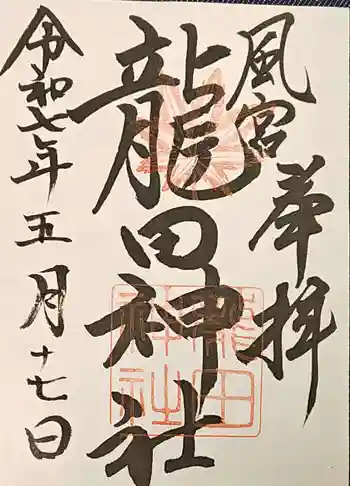 奉拝
風宮
龍田神社
令和七年五月十七日
龍田
神社